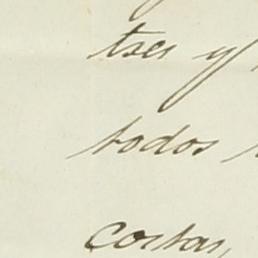 tser y
todos
costas,